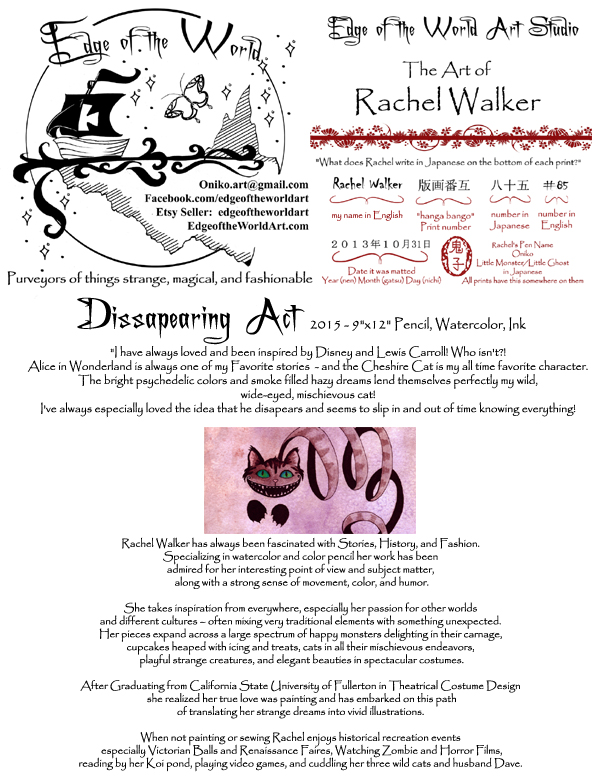 Edge of the World
Oniko.art@gmail.com
Facebook.com/edgeoftheworldart
Etsy Seller: edgeoftheworldart
EdgeoftheWorldArt.com
Purveyors of things strange, magical, and fashionable
Edge of the World Art Studio
The Art of
Rachel Walker
"What does Rachel write in Japanese on the bottom of each print?"
Rachel Walker 版画番互 八十五 #85
my name in English
"hanga bango"
Print number
number in
Japanese
number in
English
2013年10月31日
Date it was matted
Year (nen) Month (gatsu) Day (nichi)
鬼子
Rachel's Pen Name
Oniko
Little Monster/Little Ghost
in Japanese
All prints have this somewhere on them
Dissapearing Act 2015 - 9"x12" Pencil, Watercolor, Ink
"I have always loved and been inspired by Disney and Lewis Carroll! Who isn't?!
Alice in Wonderland is always one of my Favorite stories - and the Cheshire Cat is my all time favorite character.
The bright psychedelic colors and smoke filled hazy dreams lend themselves perfectly my wild,
wide-eyed, mischievous cat!
I've always especially loved the idea that he disapears and seems to slip in and out of time knowing everything!
Rachel Walker has always been fascinated with Stories, History, and Fashion.
Specializing in watercolor and color pencil her work has been
admired for her interesting point of view and subject matter,
along with a strong sense of movement, color, and humor.
She takes inspiration from everywhere, especially her passion for other worlds
and different cultures – often mixing very traditional elements with something unexpected.
Her pieces expand across a large spectrum of happy monsters delighting in their carnage,
cupcakes heaped with icing and treats, cats in all their mischievous endeavors,
playful strange creatures, and elegant beauties in spectacular costumes.
After Graduating from California State University of Fullerton in Theatrical Costume Design
she realized her true love was painting and has embarked on this path
of translating her strange dreams into vivid illustrations.
When not painting or sewing Rachel enjoys historical recreation events
especially Victorian Balls and Renaissance Faires, Watching Zombie and Horror Films,
reading by her Koi pond, playing video games, and cuddling her three wild cats and husband Dave.